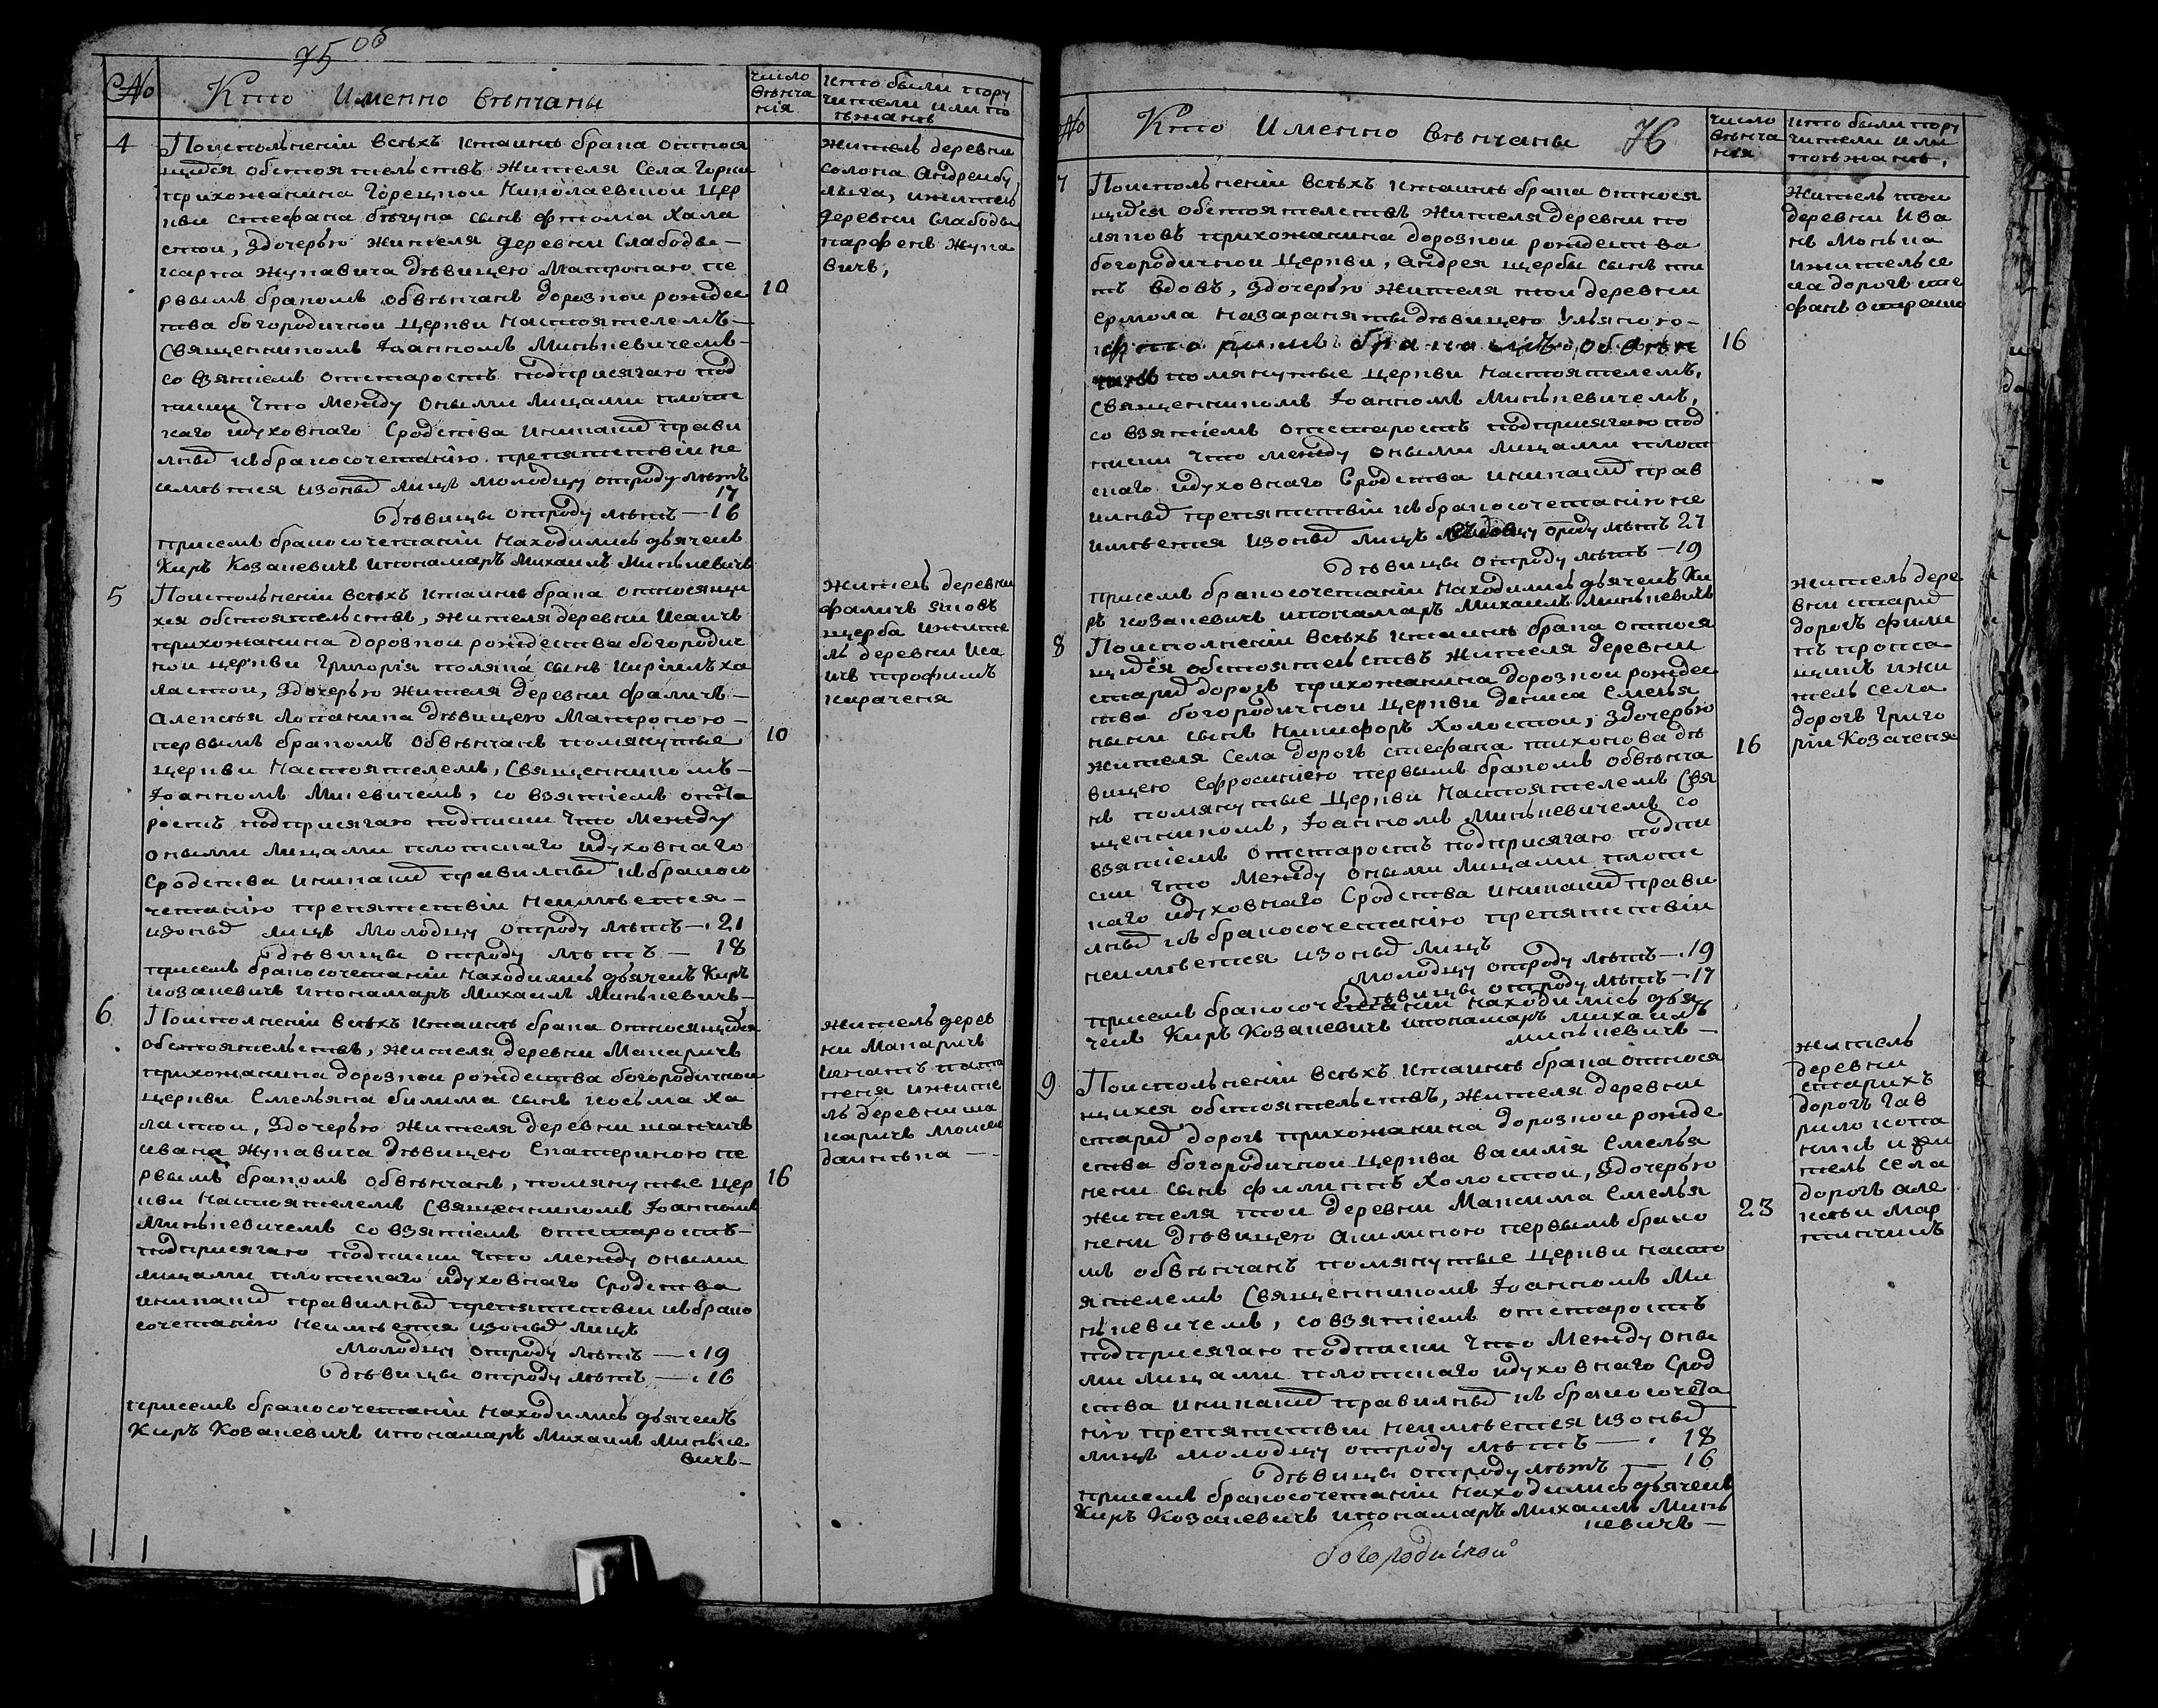 75 об
№
Кто Именно венчаны
число
венча
нiя
кто были пору
чители или по
езжанѣ
4
Поисполненiи всехъ ктаинѣ брака относя
щихся обстоятельствъ жителя Села Горки
прихожанина Горецкой Николаевской Цер
кви стефана бегуна сынъ фтома Хала
стои, здочерью жителя деревни Слабоды—
карпа Жукавича девицею Матроною пе
рвымъ бракомъ обвенчанъ дорозкои рождес
тва богородичнои Церкви Настоятелемъ—
Священникомъ Iоанномъ Минкевичемъ—
со взятiемъ отстаростъ подприсягаю под
писки что Между оными Лицами плотс
каго идуховнаго Сродства иникаких прави
лных кбракосочетанiю препятствiи не
имѣтся изоных Лицъ молодцу отроду лѣтъ
17
Девицы отроду летъ—16
присемъ бракосочетанiи Находились дьячекъ
Киръ Козакевичъ ипонамаръ Михаилъ Минкевичъ
10
Житель деревни
солона Андреибу
лыга, ижитель
деревни Слабоды
парфенъ Жука
вичъ,
5
Поисполненiи всехъ ктаинѣ брака относящи
хся обстоятельствъ, жителя деревни Исаичъ
прихожанина дорозкои рождества богородич
нои церкви Григорiя поляка сынъ Кирiилъ ха
ластои, здочерью жителя деревни фаличъ—
Алексѣя лопакина девицею Матроною—
первымъ бракомъ обвенчанъ помянутые
церкви Настоятелемъ, Священникомъ—
Iоанномъ Микевичемъ, со взятiемъ отста
ростъ подприсягаю подписки что Между
оными лицами плотскаго идуховнаго
Сродства иникаких правилных кбракосо
четанiю препятствiи Неимѣется—
изоных лицъ молодцу отроду летъ—21
девицы отроду летъ—18
присемъ бракосочетанiи находились дьячекъ Киръ
козакевичъ ипонамаръ Михаилъ Минкевичъ—
10
Житель деревни
фаличъ яковъ
щерба ижите
ль деревни Иса
ичъ трофимъ
караченя
6
Поисполненiи всехъ ктаинѣ брака относящихся
обстоятельствъ, жителя деревни Макаричъ
прихожанина дорозкои рождества богородичнои
церкви Емельяна билима сынъ косьма ха
ластои, здочерью жителя деревни шанчичъ
ивана Жукавича девицею Екатериною пе
рвымъ бракомъ обвенчанъ, помянутые цер
кви Настоятелемъ Священникомъ Iоанномъ
Минкевичемъ со взятiемъ отстаростъ—
подприсягаю подписки что между оными
лицами плотскаго идуховнаго Сродства
иникаких правилных препятствiи кбрако
сочетанiю неимѣется изоных лицъ
Молодцу отроду летъ—19
Девицы отроду летъ—16
присемъ бракосочетанiи Находились дьячекъ
Киръ Козакевичъ ипонамаръ Михаилъ Минке
вичъ—
16
Житель дерев
ни Макаричъ
игнатъ папа
ченя ижите
ль деревни ма
каричъ Моисеи
даинека—
№
Кто Именно венчаны
76
число
венча
нiя
кто были пору
чители или
поезжанѣ,
7
Поисполненiи всехъ ктаинѣ брака относя
щихся обстоятелствъ жителя деревни по
ляковъ прихожанина дорозкои рождества
богородичнои Церкви, Андрея щербы сынъ ти
тъ вдовъ, здочерью жителя тои деревни
ермола назаранаты девицею Ульяною—
фторимъ бракомъ обвен
чанъ помянутые церкви Настоятелемъ,
Священникомъ Iоанномъ Минкевичемъ,
со взятiемъ отстаростъ подприсягаю под
писки что между оными лицами плот
скаго идуховнаго Сродства иникаких прав
илных препятствiи кбракосочетанiю не
имѣется изоных лицъ вдовцу отроду летъ 27
Девицы отроду летъ—19
присемъ бракосочетанiи Находились дьячекъ Ки
ръ козакевичъ ипонамаръ Михаилъ Минкевичъ
16
Житель тои
деревни Ива
нъ Монька
ижитель се
ла дорогъ сте
фанъ острейко
8
Поисполненiи всехъ ктаинѣ брака относя
щихся обстоятельствъ жителя Деревни
старих дорогъ прихожанина дорозкои рождес
тва богородичнои Церкви дениса Емелья
ныни сынъ Никифоръ Холостои, здочерью
жителя Села дорогъ стефана тихонова де
вицею Ефросинiею первымъ бракомъ обвенча
нъ помянутые Церкви Настоятелемъ Свя
щенникомъ, Iоанномъ Минкевичемъ со
взятiемъ отстаростъ подприсягаю подпи
ски что Между оными лицами плотс
каго идуховнаго Сродства иникаких прави
лных кбракосочетанiю препятствiи
неимѣется изоных лицъ
молодцу отроду летъ—19
Девицы отроду летъ—17
присемъ бракосочетанiи находились дья
чекъ Киръ Козакевичъ ипонамаръ михаилъ
минкевичъ—
16
житель дере
вни старих
дорогъ фили
пъ прота
щикъ ижи
тель села
дорогъ Григо
рiи Козаченя
9
Поисполненiи всехъ ктаинѣ брака относя
щихся обстоятельствъ, жителя деревни
старих дорогъ прихожанина дорозкои рожде
ства богородичнои церкви василiя Емелья
нени сынъ филиппъ Холостои, здочерью
жителя тои деревни Максима Емелья
нени девицею Акилиною первымъ брако
мъ обвенчанъ помянутые церкви насто
ятелемъ Священникомъ Iоанномъ Ми
нкевичемъ, совзятiемъ отстаростъ
подприсягаю подписки что Между оны
ми лицами плотскаго идуховнаго Срод
ства иникаких правилных кбракосочета
нiю препятствiи неимѣется изоных
лицъ молодцу отроду летъ—18
Девицы отроду летъ—16
присемъ бракосочетанiи находились дьячекъ
Киръ Козакевичъ ипонамаръ Михаилъ Минь
кевичъ—
23
житель
деревни
старихъ
дорогъ гав
рило копа
никъ ижи
тель села
дорогъ але
ксеи мар
тинчикъ
богородицкой